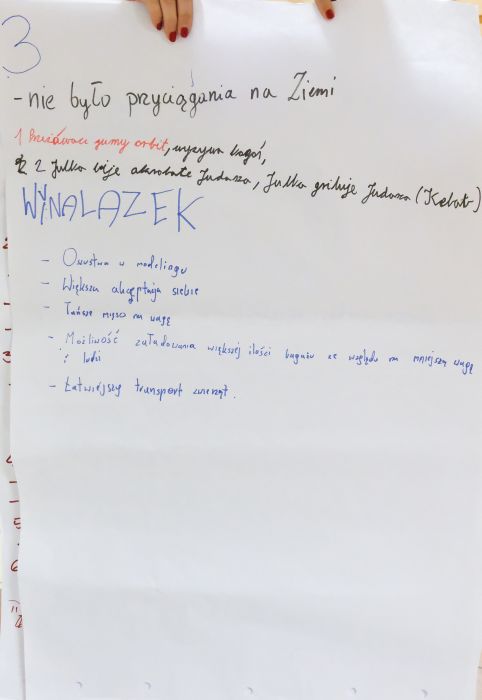 3
- nie było przyciągania na Ziemi
1 gumy orbit, wyzywa kogoś,
2 Julka bije akrobatę Judasza, Julka grilluje Judasza (Kebab)
WYNALAZEK
- Oszustwa w modelingu
- Większa akceptacja siebie
- Tańsze mięso na wagę
- Możliwość załadowania większej ilości bagażu ze względu na mniejszą wagę
i ludzi
- Łatwiejszy transport zwierząt.